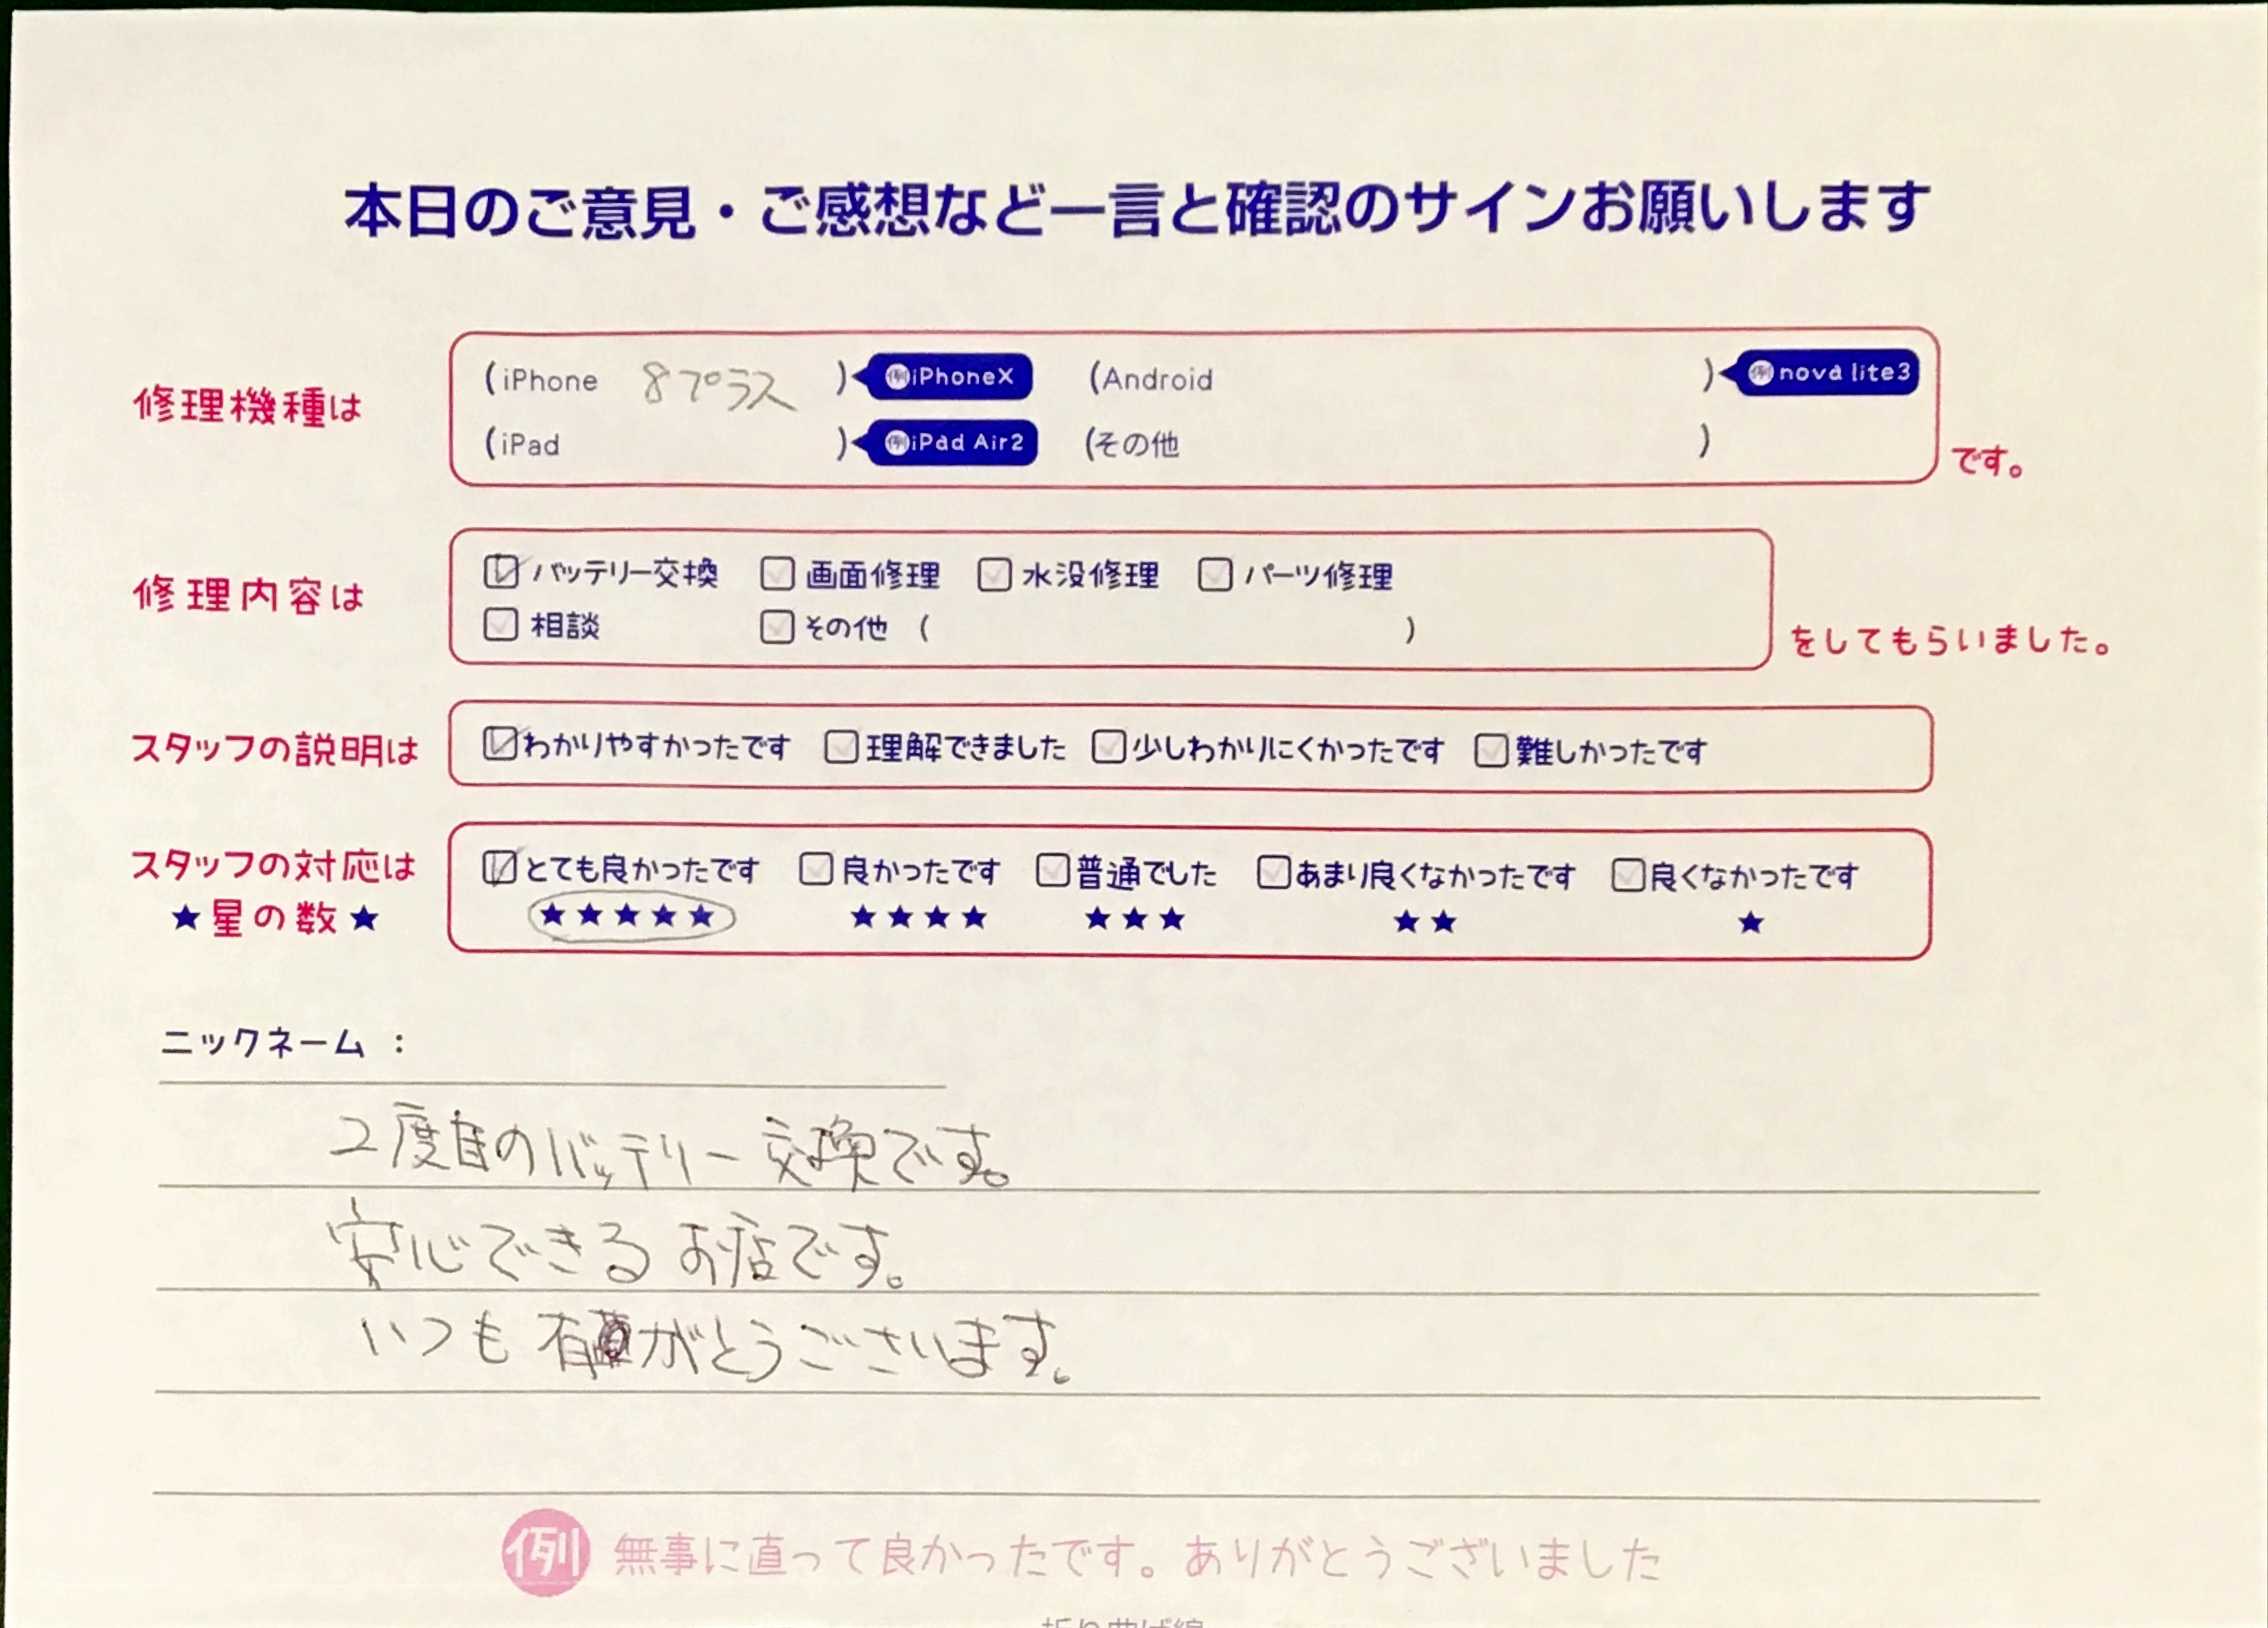 本日のご意見・ご感想など一言と確認のサインお願いします
修理機種は
(iPhone 8プラス ) 例iPhoneX (Android ) 例nova lite3
(iPad ) 例iPad Air2 (その他 )
です。
修理内容は
バッテリー交換 画面修理 水没修理 パーツ修理
相談 その他 ( )
をしてもらいました。
スタッフの説明は
わかりやすかったです 理解できました 少しわかりにくかったです 難しかったです
スタッフの対応は
★星の数★
とても良かったです 良かったです 普通でした あまり良くなかったです 良くなかったです
★★★★★ ★★★★ ★★★ ★★ ★
ニックネーム :
2度目のバッテリー交換です。
安心できるお店です。
いつも有がとうございます。
例 無事に直って良かったです。ありがとうございました